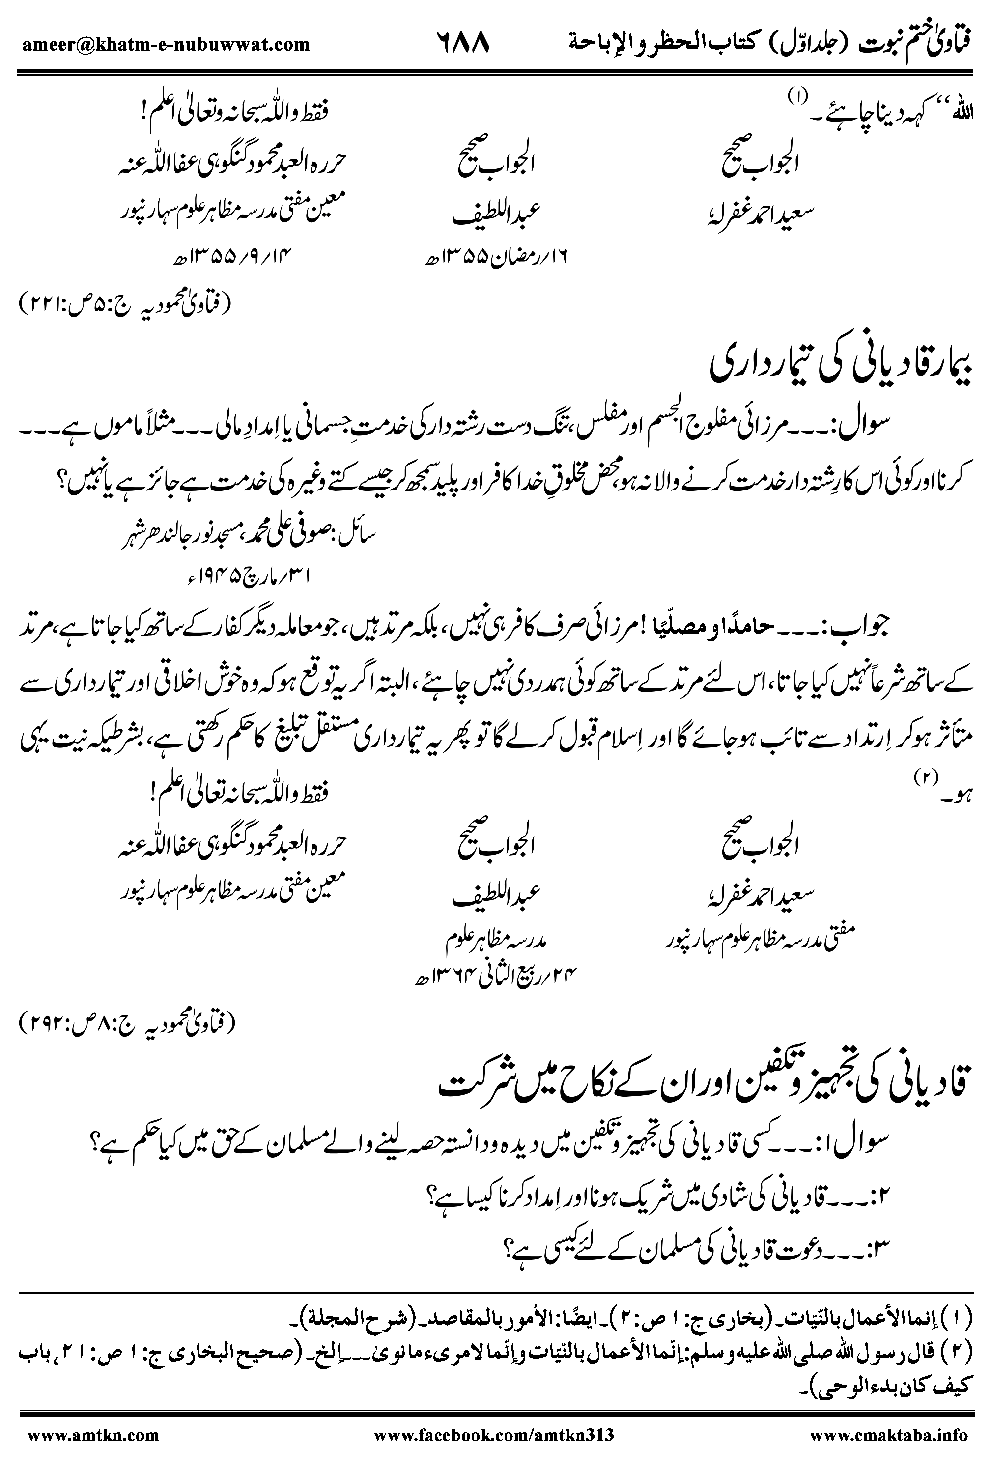 فتاویٰ ختم نبوت (جلد اوّل) کتاب الحظر والإباحة ۶۸۸ ameer@khatm-e-nubuwwat.com
اللہ“ کہہ دینا چاہئے۔(۱) فقط واللہ سبحانہ وتعالیٰ اعلم!
الجواب صحیح الجواب صحیح حررہ العبد محمود گنگوہی عفا اللہ عنہ
سعید احمد غفرلہٗ عبداللطیف معین مفتی مدرسہ مظاہر علوم سہارنپور
۱۶؍رمضان ۱۳۵۵ھ ۱۴؍۹؍۱۳۵۵ھ
(فتاویٰ محمودیہ ج:۵ ص:۲۲۱)
بیمار قادیانی کی تیمارداری
سوال:۔۔۔مرزائی مفلوج الجسم اور مفلس، تنگ دست رشتہ دار کی خدمتِ جسمانی یا اِمدادِ مالی ۔۔۔مثلاً ماموں ہے۔۔۔
کرنا اور کوئی اس کا رشتہ دار خدمت کرنے والا نہ ہو، محض مخلوقِ خدا کافر اور پلید سمجھ کر جیسے کتے وغیرہ کی خدمت ہے جائز ہے یا نہیں؟
سائل: صوفی علی محمد، مسجد نور جالندھر شہر
۳۱؍مارچ ۱۹۴۵ء
جواب:۔۔۔حامدًا ومصلّیًا! مرزائی صرف کافر ہی نہیں، بلکہ مرتد ہیں، جو معاملہ دیگر کفار کے ساتھ کیا جاتا ہے، مرتد
کے ساتھ شرعاً نہیں کیا جاتا، اس لئے مرتد کے ساتھ کوئی ہمدردی نہیں چاہئے، البتہ اگر یہ توقع ہو کہ وہ خوش اخلاقی اور تیمارداری سے
متأثر ہوکر اِرتداد سے تائب ہوجائے گا اور اِسلام قبول کرلے گا تو پھر یہ تیمارداری مستقل تبلیغ کا حکم رکھتی ہے، بشرطیکہ نیت یہی
ہو۔(۲) فقط واللہ سبحانہ تعالیٰ اعلم!
الجواب صحیح الجواب صحیح حررہ العبد محمود گنگوہی عفا اللہ عنہ
سعید احمد غفرلہٗ عبداللطیف معین مفتی مدرسہ مظاہر علوم سہارنپور
مفتی مدرسہ مظاہر علوم سہارنپور مدرسہ مظاہر علوم
۲۴؍ربیع الثانی ۱۳۶۴ھ
(فتاویٰ محمودیہ ج:۸ ص:۲۹۲)
قادیانی کی تجہیز وتکفین اور ان کے نکاح میں شرکت
سوال ۱:۔۔۔کسی قادیانی کی تجہیز وتکفین میں دیدہ ودانستہ حصہ لینے والے مسلمان کے حق میں کیا حکم ہے؟
۲:۔۔۔قادیانی کی شادی میں شریک ہونا اور اِمداد کرنا کیسا ہے؟
۳:۔۔۔دعوت قادیانی کی مسلمان کے لئے کیسی ہے؟
(۱) إنما الأعمال بالنّيّات۔ (بخاری ج:۱ ص:۲)۔ ایضًا: الأمور بالمقاصد۔ (شرح المجلة)۔
(۲) قال رسول الله صلى الله عليه وسلم: إنّما الأعمال بالنّيّات وإنّما لامرىء ما نوىٰ۔۔۔إلخ۔ (صحيح البخارى ج:۱ ص:۲۱، باب
كيف كان بدء الوحى)۔
www.amtkn.com www.facebook.com/amtkn313 www.cmaktaba.info